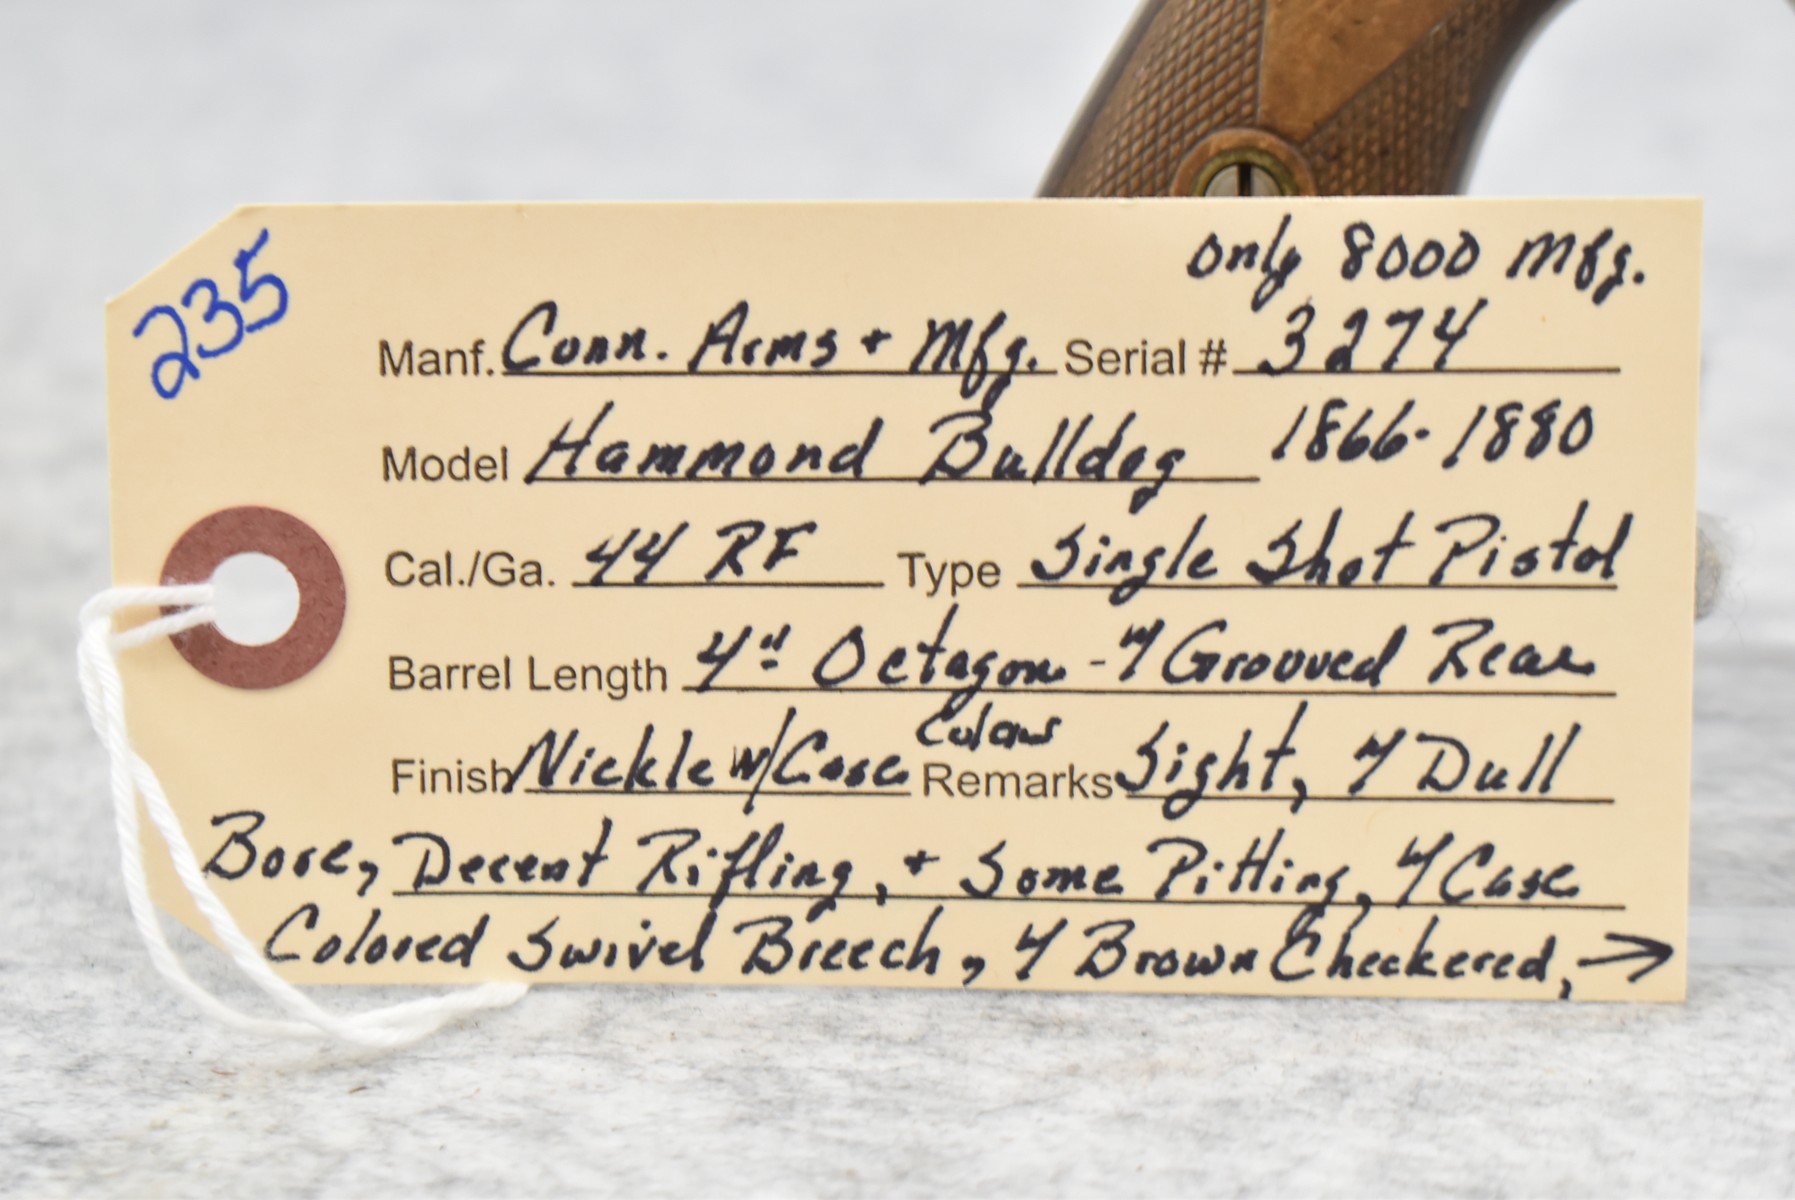 235
only 8000 Mfg.
Manf. Conn. Arms + Mfg. Serial # 3274
Model Hammond Bulldog 1866-1880
Cal./Ga. 44 RF Type Single Shot Pistol
Barrel Length 4" Octagon - 4 Grooved Rear
Colors
Finish Nickle w/Case Remarks Sight, 4 Dull
Bore, Decent Rifling, + Some Pitting, 4 Case
Colored Swivel Breech, 4 Brown Checkered, →